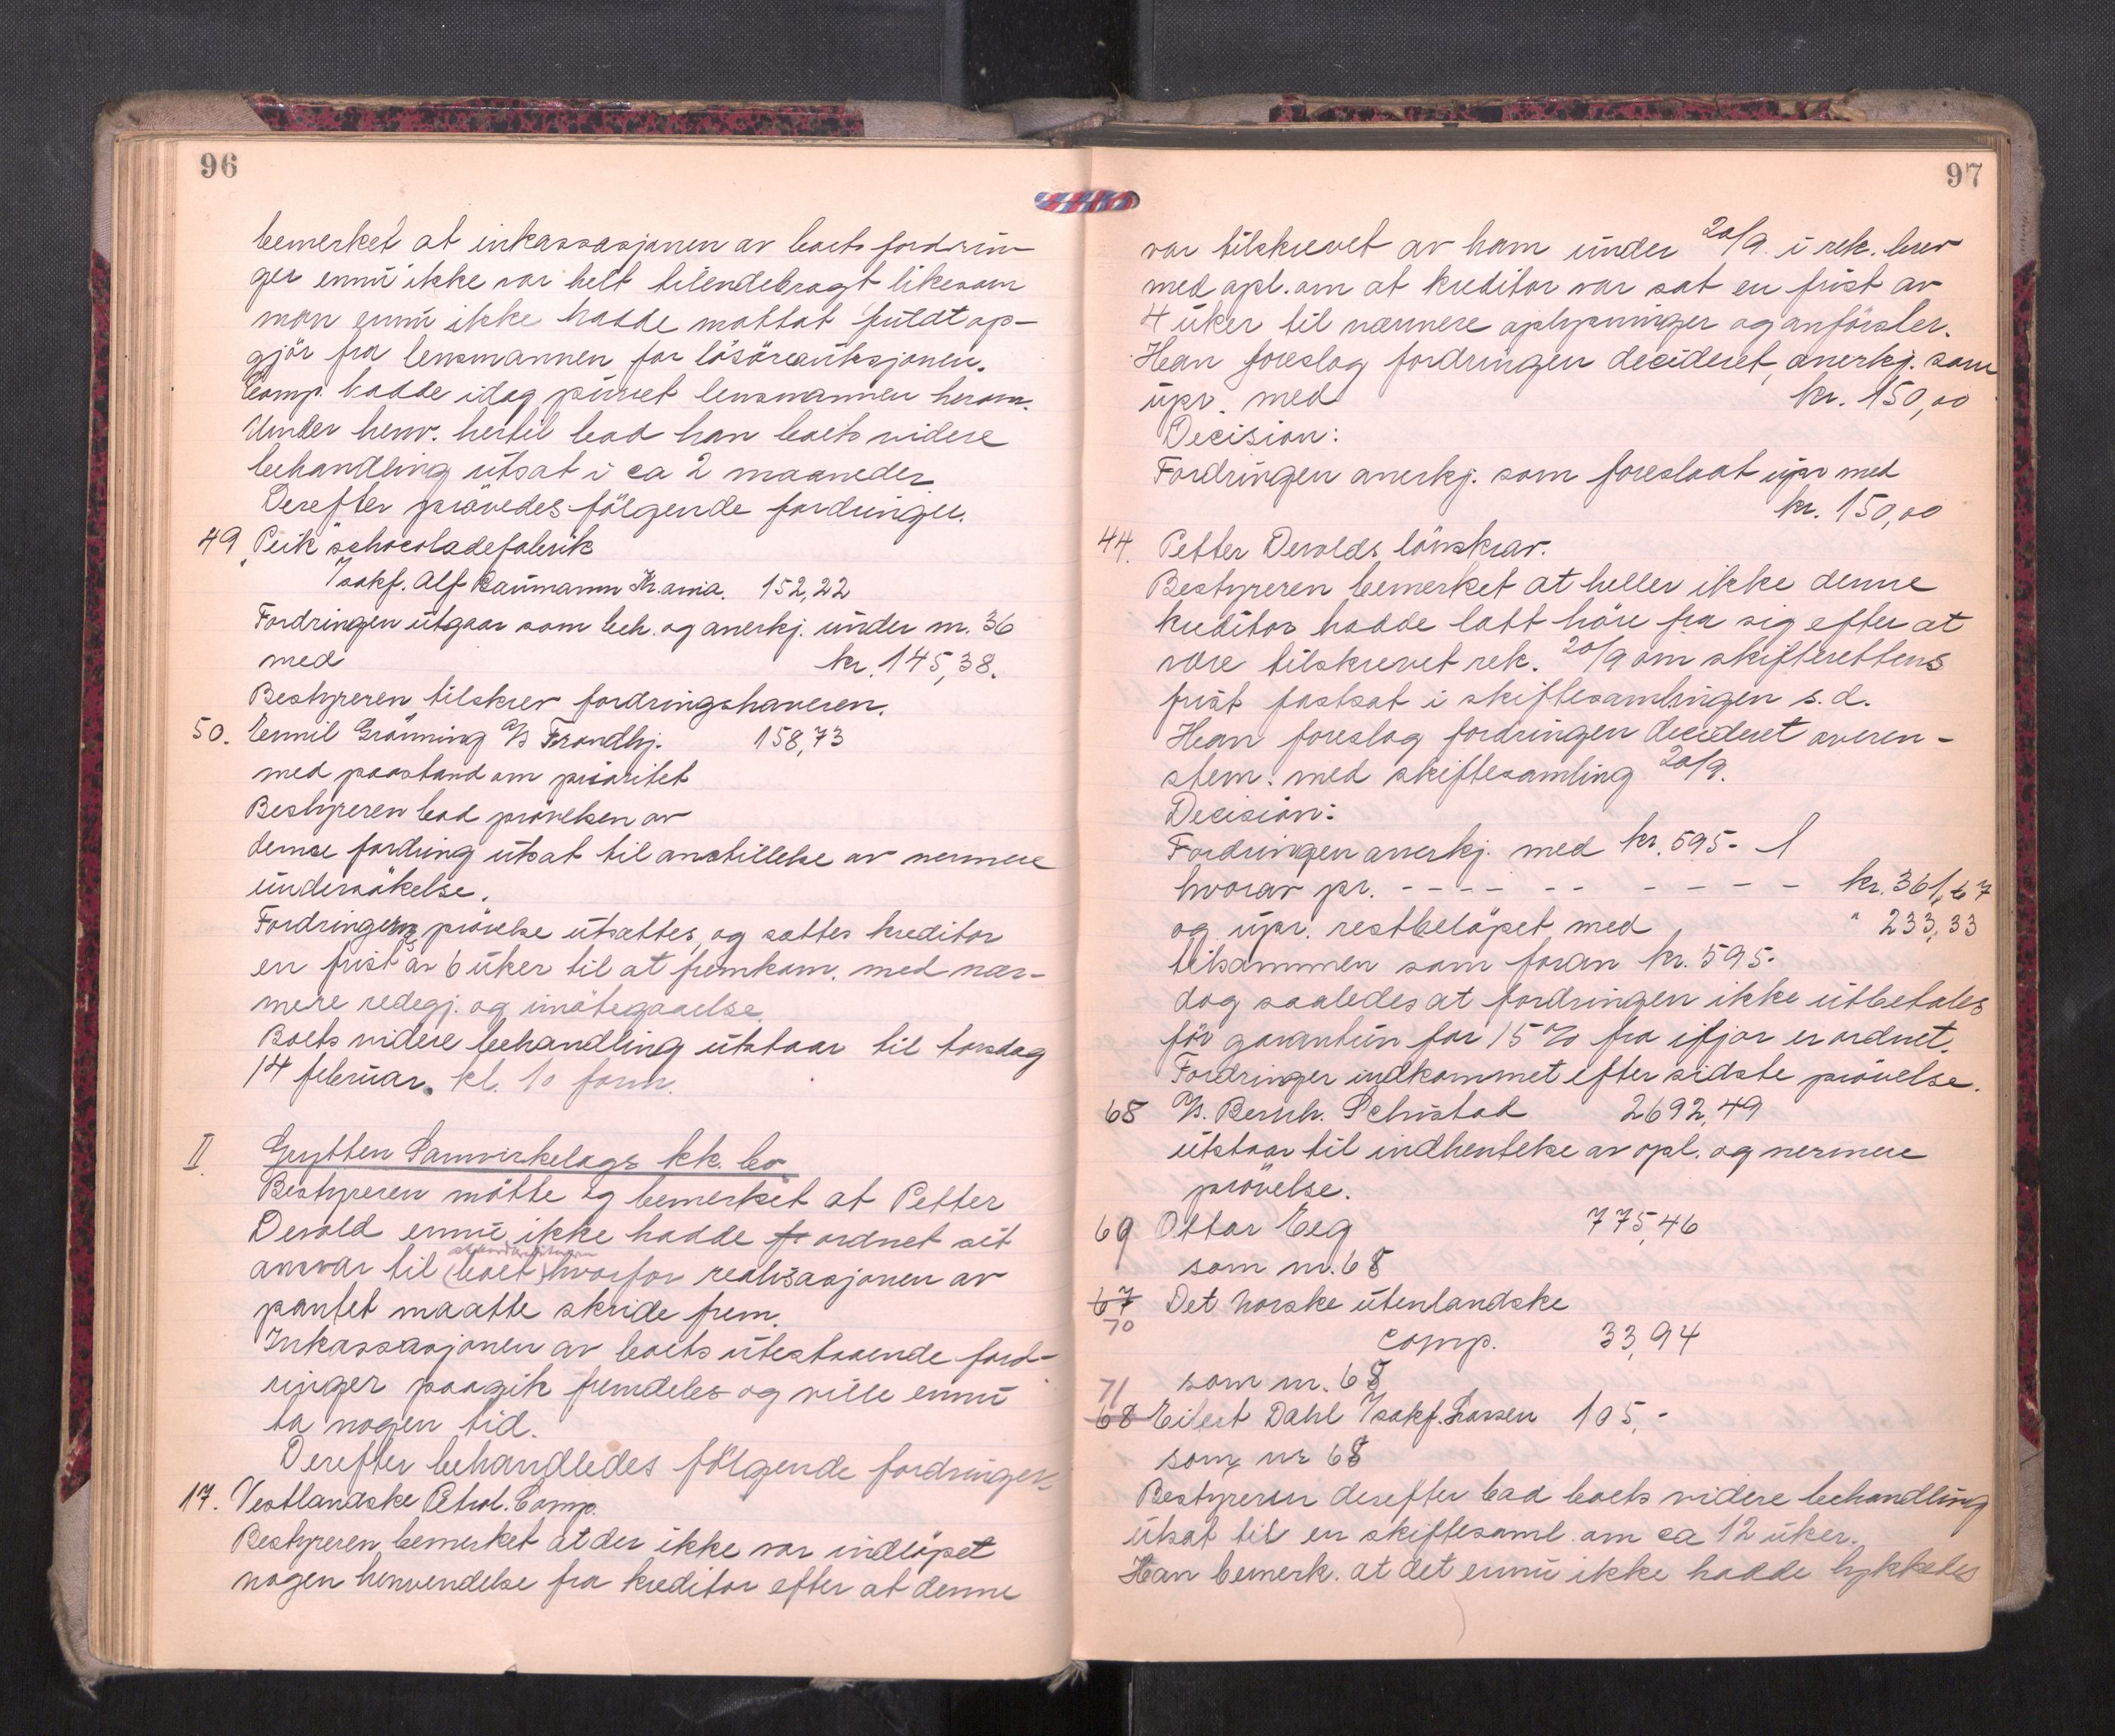 96
bemerket at inkassasjonen av boets fordrin-
ger ennu ikke var helt tilendebragt likesom
man ennu ikke hadde mottat fuldt op-
gjör fra lensmannen for lösöreauksjonen.
Comp. hadde idag purret lensmannen herom.
Under henv. hertil bad han boets videre
behandling utsat i ca 2 maaneder
Derefter prövedes følgende fordringer.
49. Peik schocoladefabrik
v/sakf. Alf Baumann Kr.ania. 152,22
Fordringen utgaar som beh. og anerkj. under nr. 36
med kr. 145,38.
Bestyreren tilskrev fordringshaveren.
50. Emil Grönning A/S Trondhj. 158,73
med paastand om prioritet
Bestyreren bad prövelsen av
denne fordring utsat til anstillelse av nermere
undersökelse.
Fordringens prövelse utsættes, og sattes kreditor
en frist av 6 uker til at fremkom. med nær-
mere redegj. og imötegaaelse.
Boets videre behandling utstaar til torsdag
14 februar. kl. 10 form.
II. Grytten Samvirkelags kk. bo
Bestyreren mötte og bemerket at Petter
Devold ennu ikke hadde ordnet sit
ansvar til (boet) hvorfor realisasjonen av
pantet maatte skride frem.
Inkassasjonen av boets utestaaende ford-
ringer paagik fremdeles og ville ennu
ta nogen tid.
Derefter behandledes følgende fordringer
17. Vestlandske Petrol. Comp.
Bestyreren bemerket at der ikke var indlöpet
nogen henvendelse fra kreditor efter at denne
97
var tilskrevet av ham under 20/9. i rek. brev
med opl. om at kreditor var sat en frist av
4 uker til nærmere oplysninger og anförsler.
Han foreslog fordringen decideret, anerkj. som
upr. med kr. 150,00
Decision:
Fordringen anerkj. som foreslaat upr med
kr. 150,00
44. Petter Devolds lönskrav.
Bestyreren bemerket at heller ikke denne
kreditor hadde latt höre fra sig efter at
være tilskrevet rek. 20/9 om skifterettens
frist fastsat i skiftesamlingen s.d.
Han foreslog fordringen decideret overen-
stem. med skiftesamling 20/9.
Decision:
Fordringen anerkj. med kr. 595.-
hvorav pr. - - - - - - - - - - kr. 361,67
og upr. restbelöpet med " 233,33
tilsammen som foran kr. 595.-
dog saaledes at fordringen ikke utbetales
för garantien for 15% fra ifjor er ordnet.
Fordringer indkommet efter sidste prövelse.
68 A/S. Bernh. Schistad 2692,49
utstaar til indhentelse av opl. og nermere
prövelse.
69 Ottar Eeg 775,46
som nr. 68
67
70 Det norske utenlandske
Comp. 33,94
som nr. 68
71
68 Eilert Dahl v/sakf. Larsen 105,-
som nr 68
Bestyreren derefter bad boets videre behandling
utsat til en skiftesaml. om ca 12 uker.
Han bemerk. at det ennu ikke hadde lykkedes